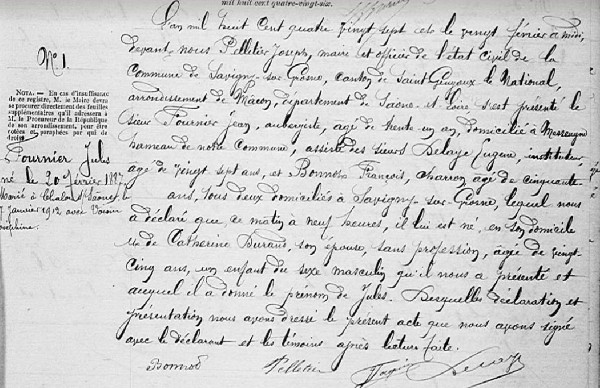 mil huit cent quatre-vingt-six.
L'an mil huit cent quatre vingt sept et le vingt février à midi,
devant nous Pelletier Joseph, maire et officier de l'état civil de la
Commune de Savigny-sur-Grosne, canton de Saint Gengoux le National,
arrondissement de Mâcon, département de Saone et Loire s'est présenté le
sieur Fournier Jean, aubergiste, agé de trente-un ans, domicilié à Messeugne
hameau de notre Commune, assisté des sieurs Delaye Eugène, instituteur,
agé de vingt sept ans, et Bonnot François, charron agé de cinquante
ans, tous deux domiciliés à Savigny-sur-Grosne, lequel nous
a déclaré que ce matin à neuf heures, il lui est né, en son domicile
et de Catherine Durand, son épouse, sans profession, âgée de vingt-
cinq ans, un enfant du sexe masculin qu'il nous a présenté et
auquel il a donné le prénom de Jules. Lesquelles déclaration et
présentation nous avons dressé le présent acte que nous avons signé
avec le déclarant et les témoins après lecture faite.
Bonnot Pelletier
N° 1.
NOTA. — En cas d'insuffisance
de ce registre, M. le Maire devra
se procurer directement des feuilles
supplémentaires qu'il adressera à
M. le Procureur de la République
de son arrondissement, pour être
cotées et paraphées par qui de
droit.
Fournier Jules
né le 20 février 1887
Marié à Chalon s/Saône, le
Janvier 1912 avec